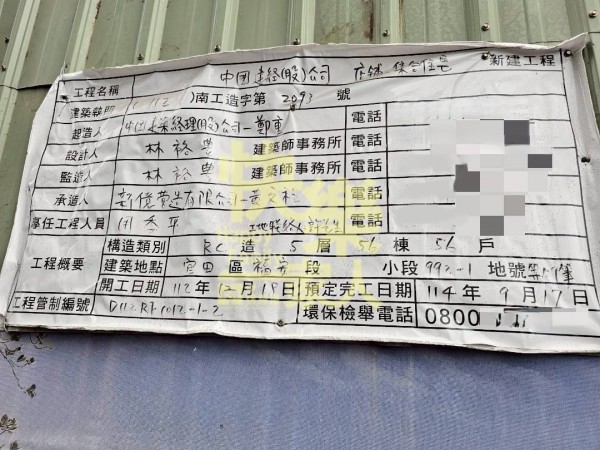 工程名稱 中國建經(股)公司 店鋪 集合住宅 新建工程
建築執照 (112)南工造字第 2093 號
起造人 中國建築經理(股)公司 電話
設計人 林裕豊 建築師事務所 電話
監造人 林裕豊 建築師事務所 電話
承造人 有限公司 電話
專任工程人員 平 工地聯絡人 電話
工程概要 構造類別 RC 造 5 層 56 棟 56 戶
建築地點 官田 區 福安 段 小段 992-1 地號等 筆
開工日期 112 年 12 月 19 日 預定完工日期 114 年 9 月 17 日
工程管制編號 環保檢舉電話 0800
快樂